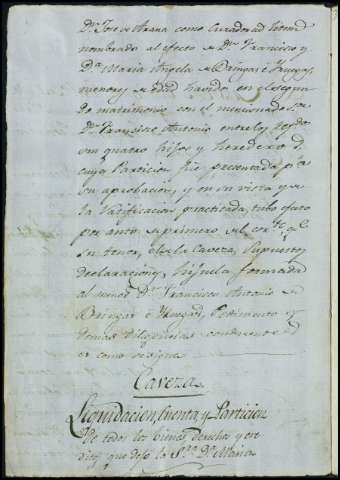 Dn. Jose de Arana como Curador ad litem
nombrado al efecto de Dn. Francisco y
Da. Maria Angela de Bringas é
menores de edad, havidos en el segun
do matrimonio con el mencionado
Dn. Francisco Antonio entre los
quatro hijos y herederos
cuya Particion fue presentada pa.
su aprobacion, y en su vista y de
la ratificacion practicada, tubo efecto
por auto de primero de
su tenor, el de la Caveza, Supuestos
declaraciones, hijuela formada
al menor Dn. Francisco Antonio de
Bringas é Pedimento y
demas diligencias
es como se sigue
Caveza
Liquidacion, Cuenta y Particion
de todos los bienes, derechos y
que dejo la Sra. Da. Maria